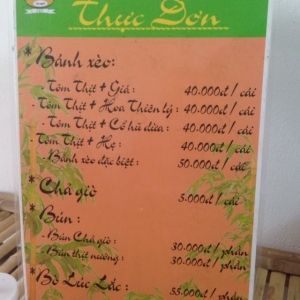 Thực Đơn
* Bánh xèo:
-Tôm Thịt + Giá: 40.000đ / cái
-Tôm Thịt + Hoa Thiên lý: 40.000đ / cái
-Tôm Thịt + Cổ hũ dừa: 40.000đ / cái
-Tôm Thịt + Hẹ: 40.000đ / cái
-Bánh xèo đặc biệt: 50.000đ / cái
* Chả giò 5.000đ / cái
* Bún:
-Bún Chả giò: 30.000đ / phần
-Bún thịt nướng: 30.000đ / phần
* Bò Lúc Lắc: 55.000đ / phần